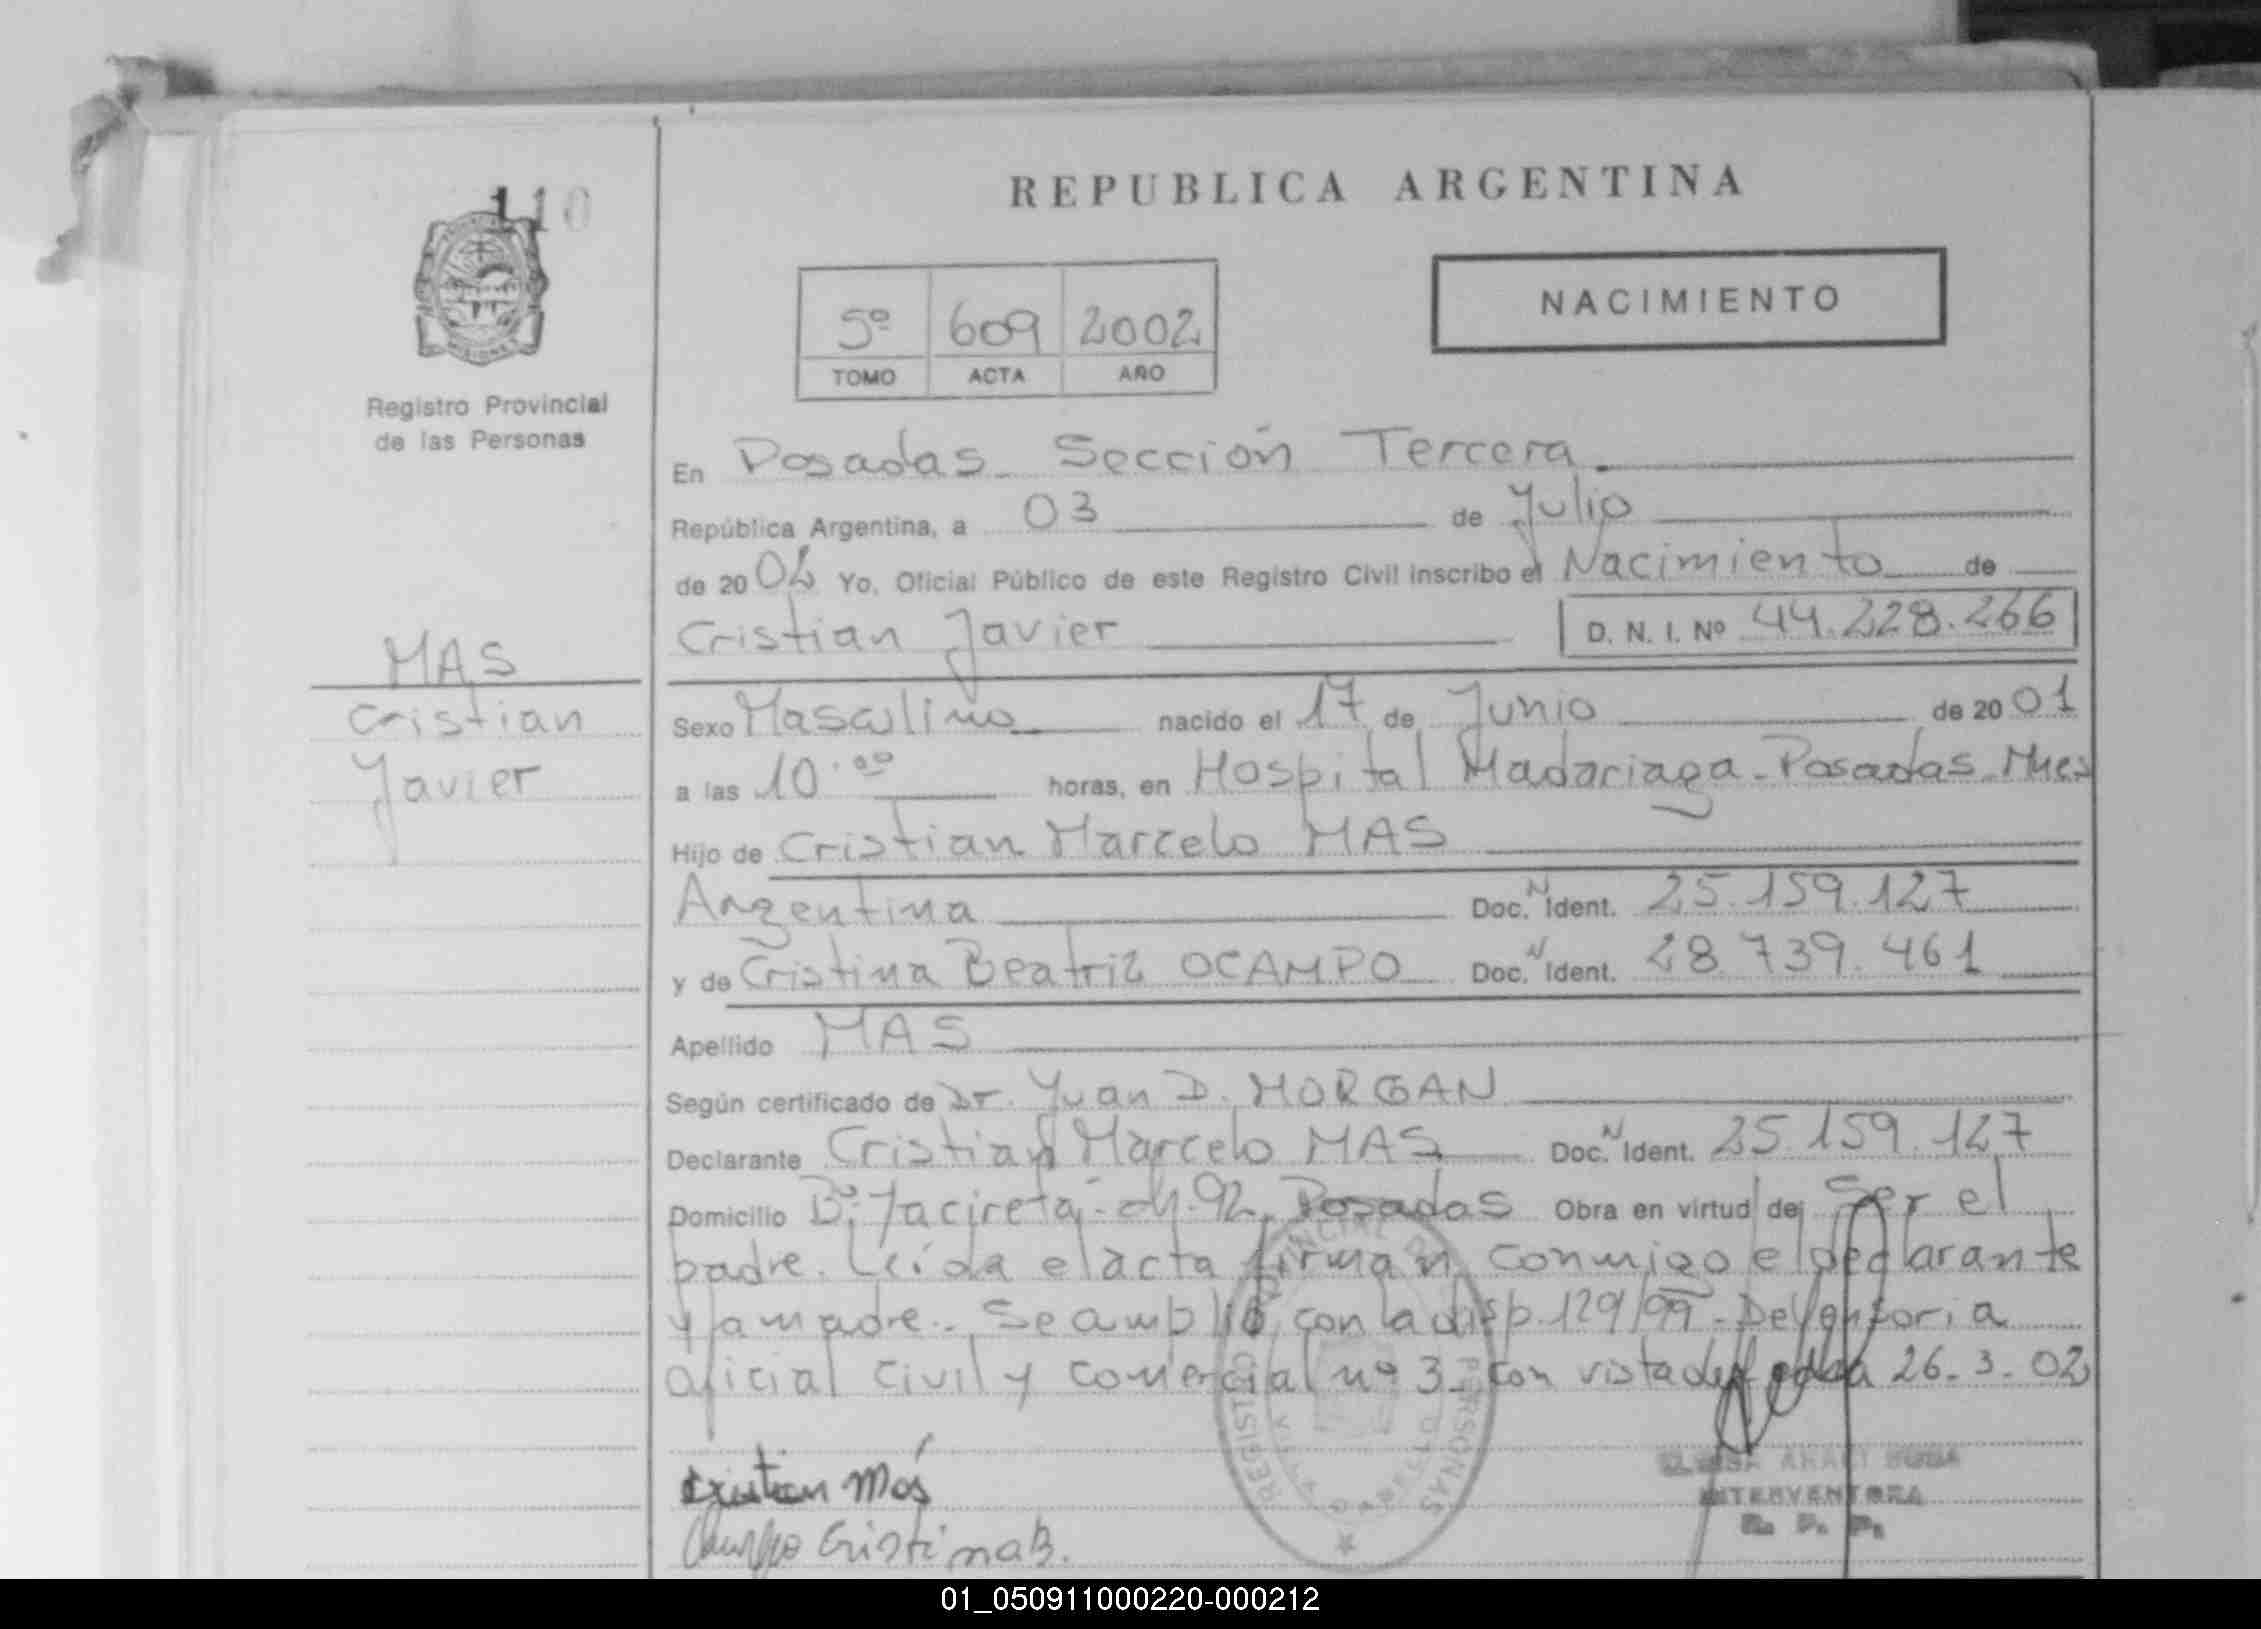 110
REPUBLICA ARGENTINA
NACIMIENTO
5º 609 2002
TOMO ACTA AÑO
MISIONES
Registro Provincial
de las Personas
En Posadas - Sección Tercera
República Argentina, a 03 de Julio
de 2002 Yo, Oficial Público de este Registro Civil inscribo el Nacimiento de
Cristian Javier D. N. I. Nº 44.228.266
MAS
Cristian
Javier
Sexo Masculino nacido el 17 de Junio de 2001
a las 10.00 horas, en Hospital Madariaga - Posadas Mnes
Hijo de Cristian Marcelo MAS
Argentina Doc. N Ident. 25.159.127
y de Cristina Beatriz OCAMPO Doc. N Ident. 28.739.461
Apellido MAS
Según certificado de Dr. Juan D. MORGAN
Declarante Cristian Marcelo MAS Doc. N Ident. 25.159.127
Domicilio Bº Yacireta - ch. 92. Posadas Obra en virtud de Ser el
padre. Leída el acta firman conmigo el declarante
y la madre. Se amplió con la disp. 129/99 - Defensoria
oficial civil y comercial nº 3 con vista de 26-3-02
Cristian Más
Ocampo Cristina B.
REGISTRO PROVINCIAL DE PERSONAS
INTERVENTORA
R. P. P.
01_050911000220-000212